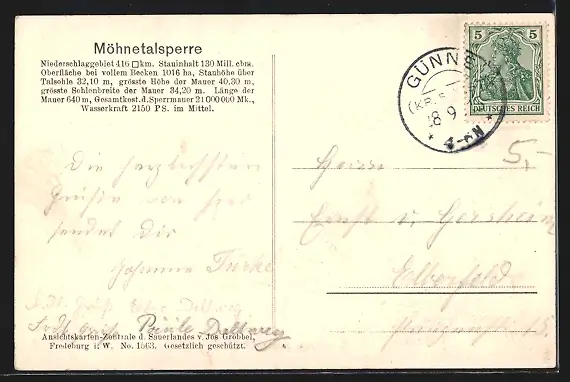 Möhnetalsperre
Niederschlaggebiet 416 □km. Stauinhalt 130 Mill. cbm.
Oberfläche bei vollem Becken 1016 ha, Stauhöhe über
Talsohle 32,10 m, grösste Höhe der Mauer 40,30 m,
grösste Sohlenbreite der Mauer 34,20 m. Länge der
Mauer 640 m, Gesamtkost. d. Sperrmauer 21 000 000 Mk.,
Wasserkraft 2150 PS. im Mittel.
Die herzlichsten
Grüße von hier
sendet Dir
Johanna
Ansichtskarten-Zentrale d. Sauerlandes v. Jos Grobbel,
Fredeburg i. W. No. 1563. Gesetzlich geschützt.
5
5
DEUTSCHES REICH
GÜNNE
5,-
Herrn
Ernst v.
Elberfeld